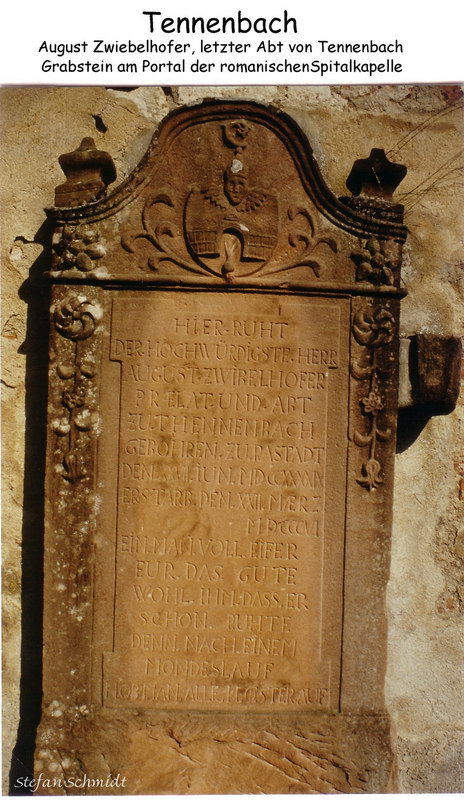 Tennenbach
August Zwiebelhofer, letzter Abt von Tennenbach
Grabstein am Portal der romanischenSpitalkapelle
HIER·RUHT
DER·HOCHWÜRDIGSTE·HERR
AUGUST·ZWIBELHOFER
PRELAT·UND·ABT
ZU·THENNENBACH
GEBOHREN·ZU·RASTADT
DEN
ERSTARB·DEN·XXII·MERZ
MDCCCVI
EIN·MAN·VOLL·EIFER
FUR·DAS·GUTE
WOHL·IHM·DASS·ER
SCHON·RUHTE
DENN·NACH·EINEM
MONDESLAUF
ALLE
Stefan Schmidt